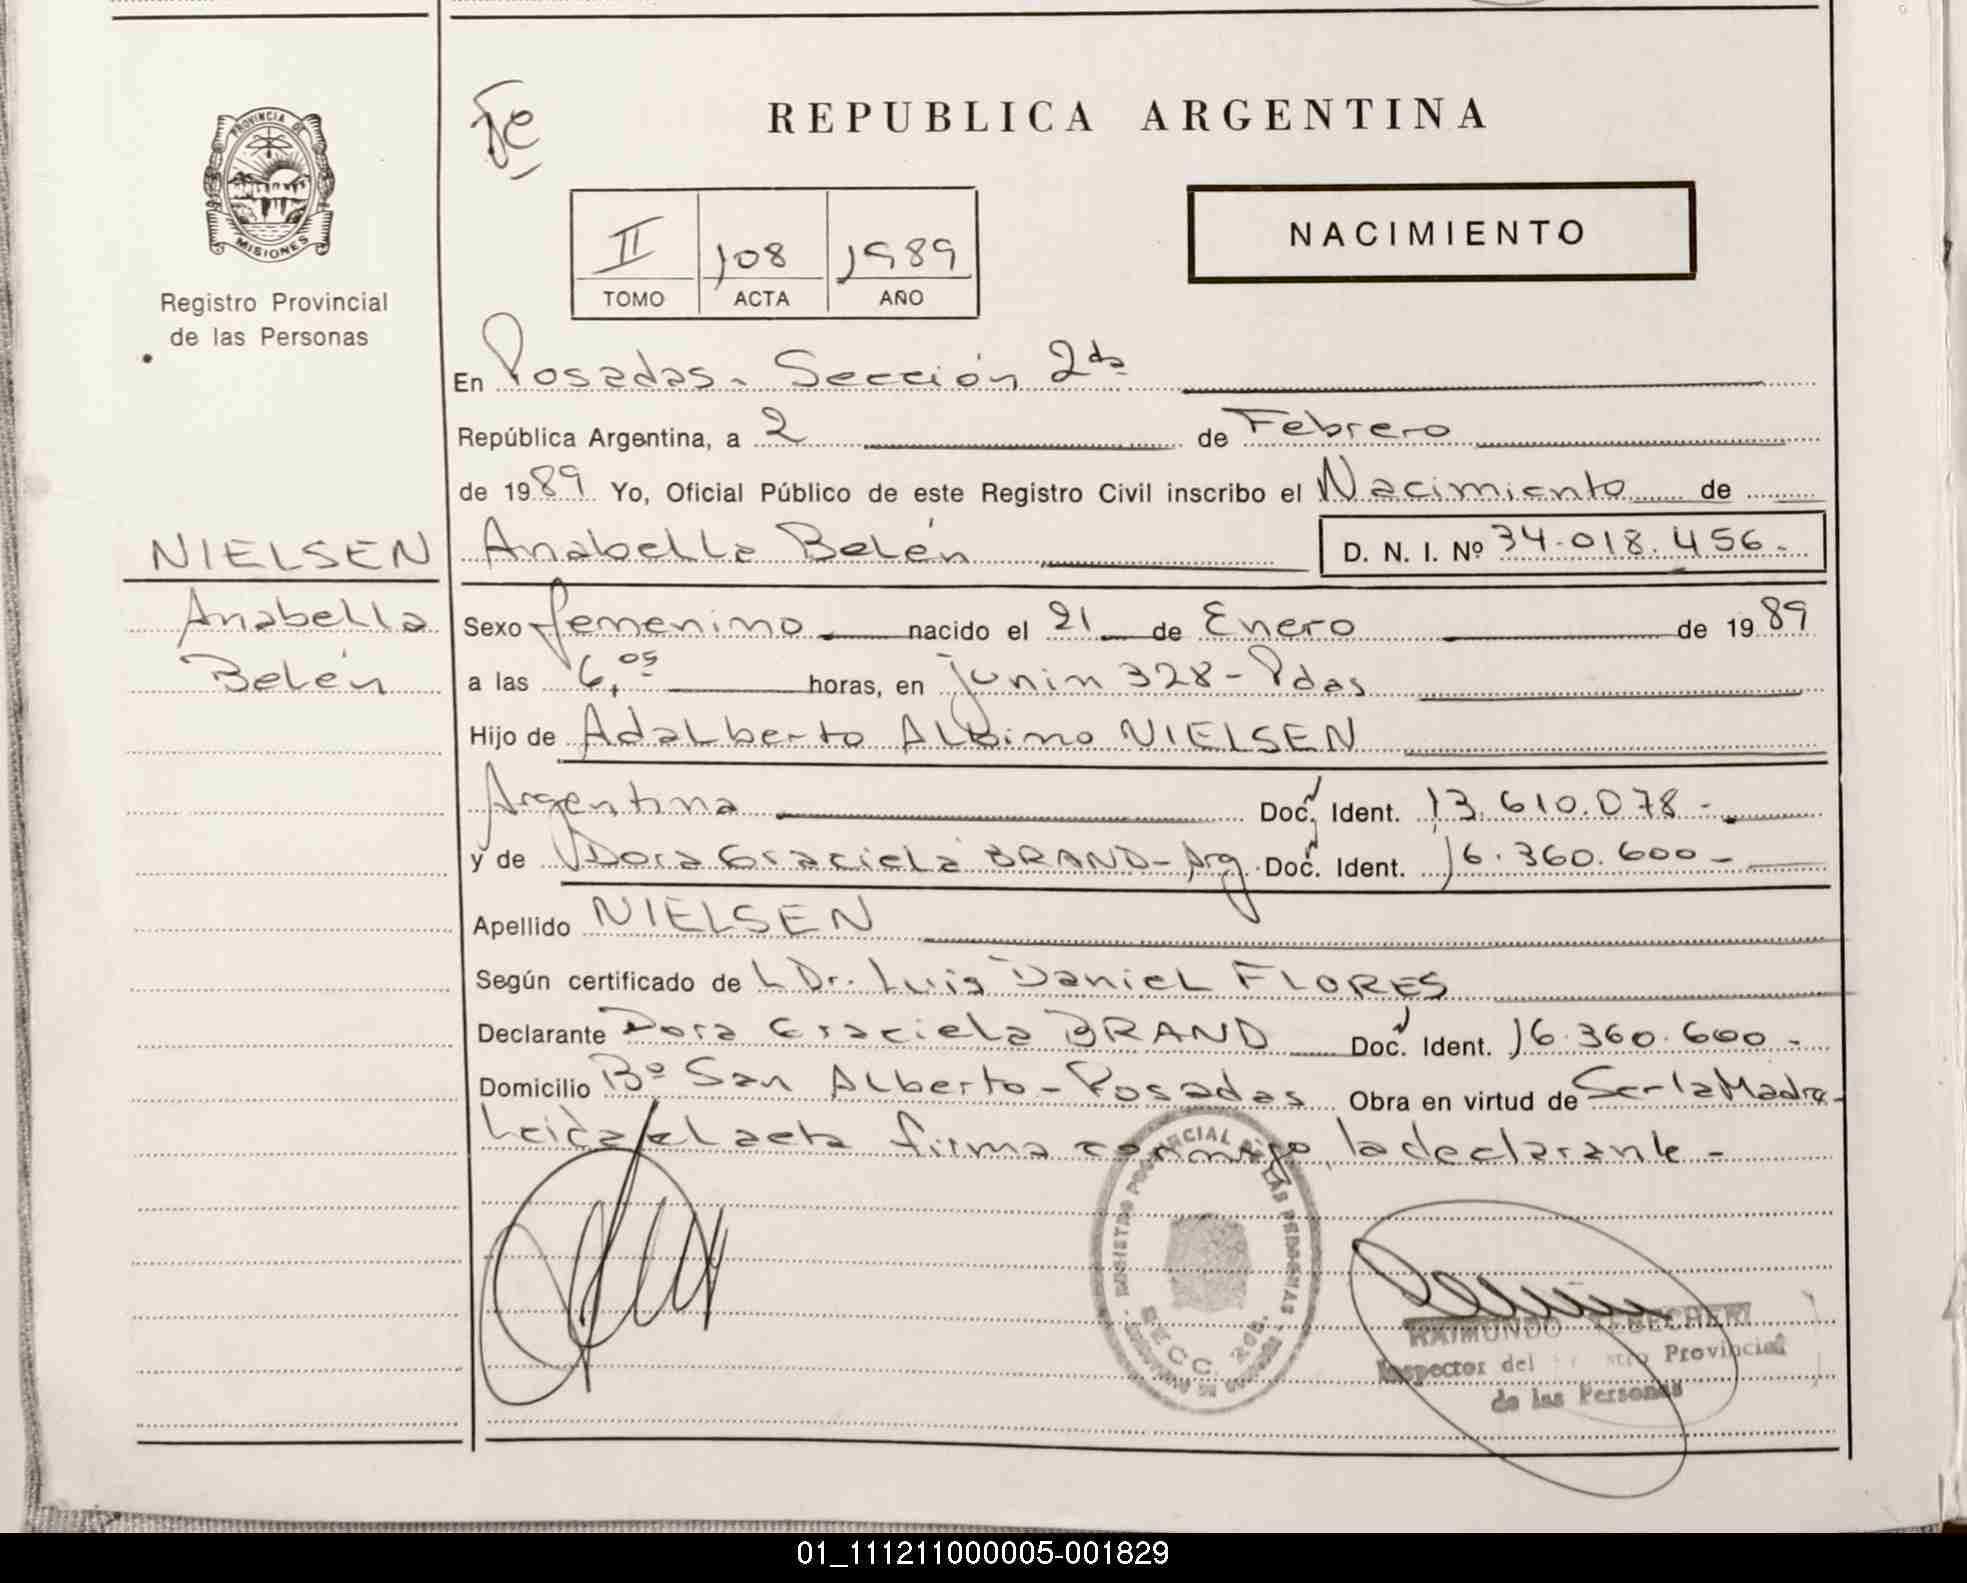 PROVINCIA DE
MISIONES
Registro Provincial
de las Personas
NIELSEN
Anabella
Belén
REPUBLICA ARGENTINA
NACIMIENTO
II 108 1989
TOMO ACTA AÑO
En Posadas. Sección 2da
República Argentina, a 2 de Febrero
de 1989 Yo, Oficial Público de este Registro Civil inscribo el Nacimiento de
Anabella Belén D. N. I. Nº 34.018.456.
Sexo femenino nacido el 21 de Enero de 1989
a las 6,05 horas, en junin 328 - Pdas
Hijo de Adalberto Albino NIELSEN
Argentina Doc. Ident. 13.610.078 -
y de Dora Graciela BRAND - Arg. Doc. Ident. 16.360.600 -
Apellido NIELSEN
Según certificado de L Dr. Luis Daniel FLORES
Declarante Dora Graciela BRAND Doc. Ident. 16.360.600 -
Domicilio Bº San Alberto - Posadas Obra en virtud de Ser la Madre -
Leida el acta firma conmigo, la declarante -
REGISTRO PROVINCIAL DE LAS PERSONAS
SECC. 2da.
RAIMUNDO
Inspector del Provincial
de las Personas
01_111211000005-001829